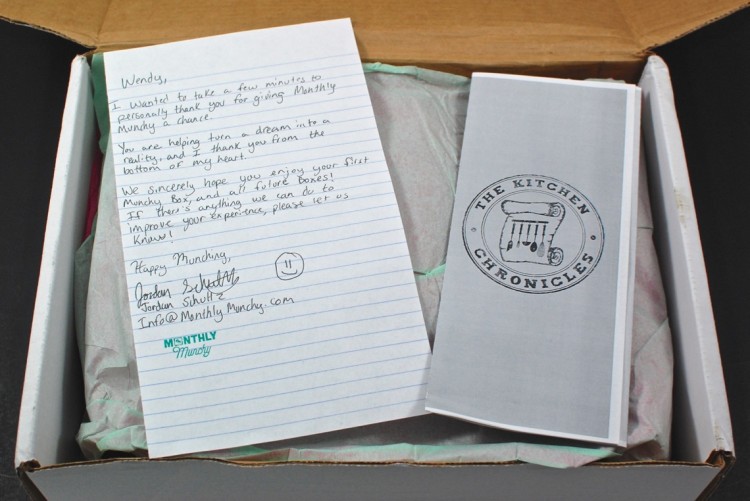 Wendy,
I wanted to take a few minutes to
personally thank you for giving Monthly
Munchy a chance.
You are helping turn a dream into a
reality, and I thank you from the
bottom of my heart.
We sincerely hope you enjoy your first
Munchy Box, and all future boxes!
If there's anything we can do to
improve your experience, please let us
know!
Happy Munching,
Jordan Schultz
Jordan Schultz
Info@MonthlyMunchy.com
MONTHLY
Munchy
THE KITCHEN
CHRONICLES